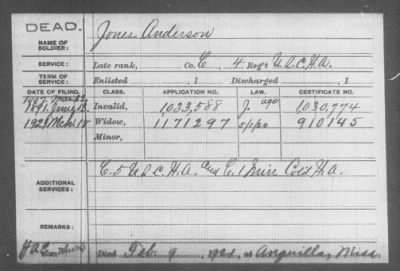 DEAD.
NAME OF SOLDIER: Jones Anderson
SERVICE: Late rank, Co. E, 4 Reg't U.S.C.H.A.
TERM OF SERVICE: Enlisted , 1 Discharged , 1
DATE OF FILING. CLASS. APPLICATION NO. LAW. CERTIFICATE NO.
1891 Invalid, 1,033,588 1,030,774
192 Mch. 18 Widow, 1171297 910145
Minor,
ADDITIONAL SERVICES: C. 5 U.S.C.H.A. and C. 1 Miss Cold H.A.
REMARKS:
Died Feb. 9, at Anguilla, Miss.